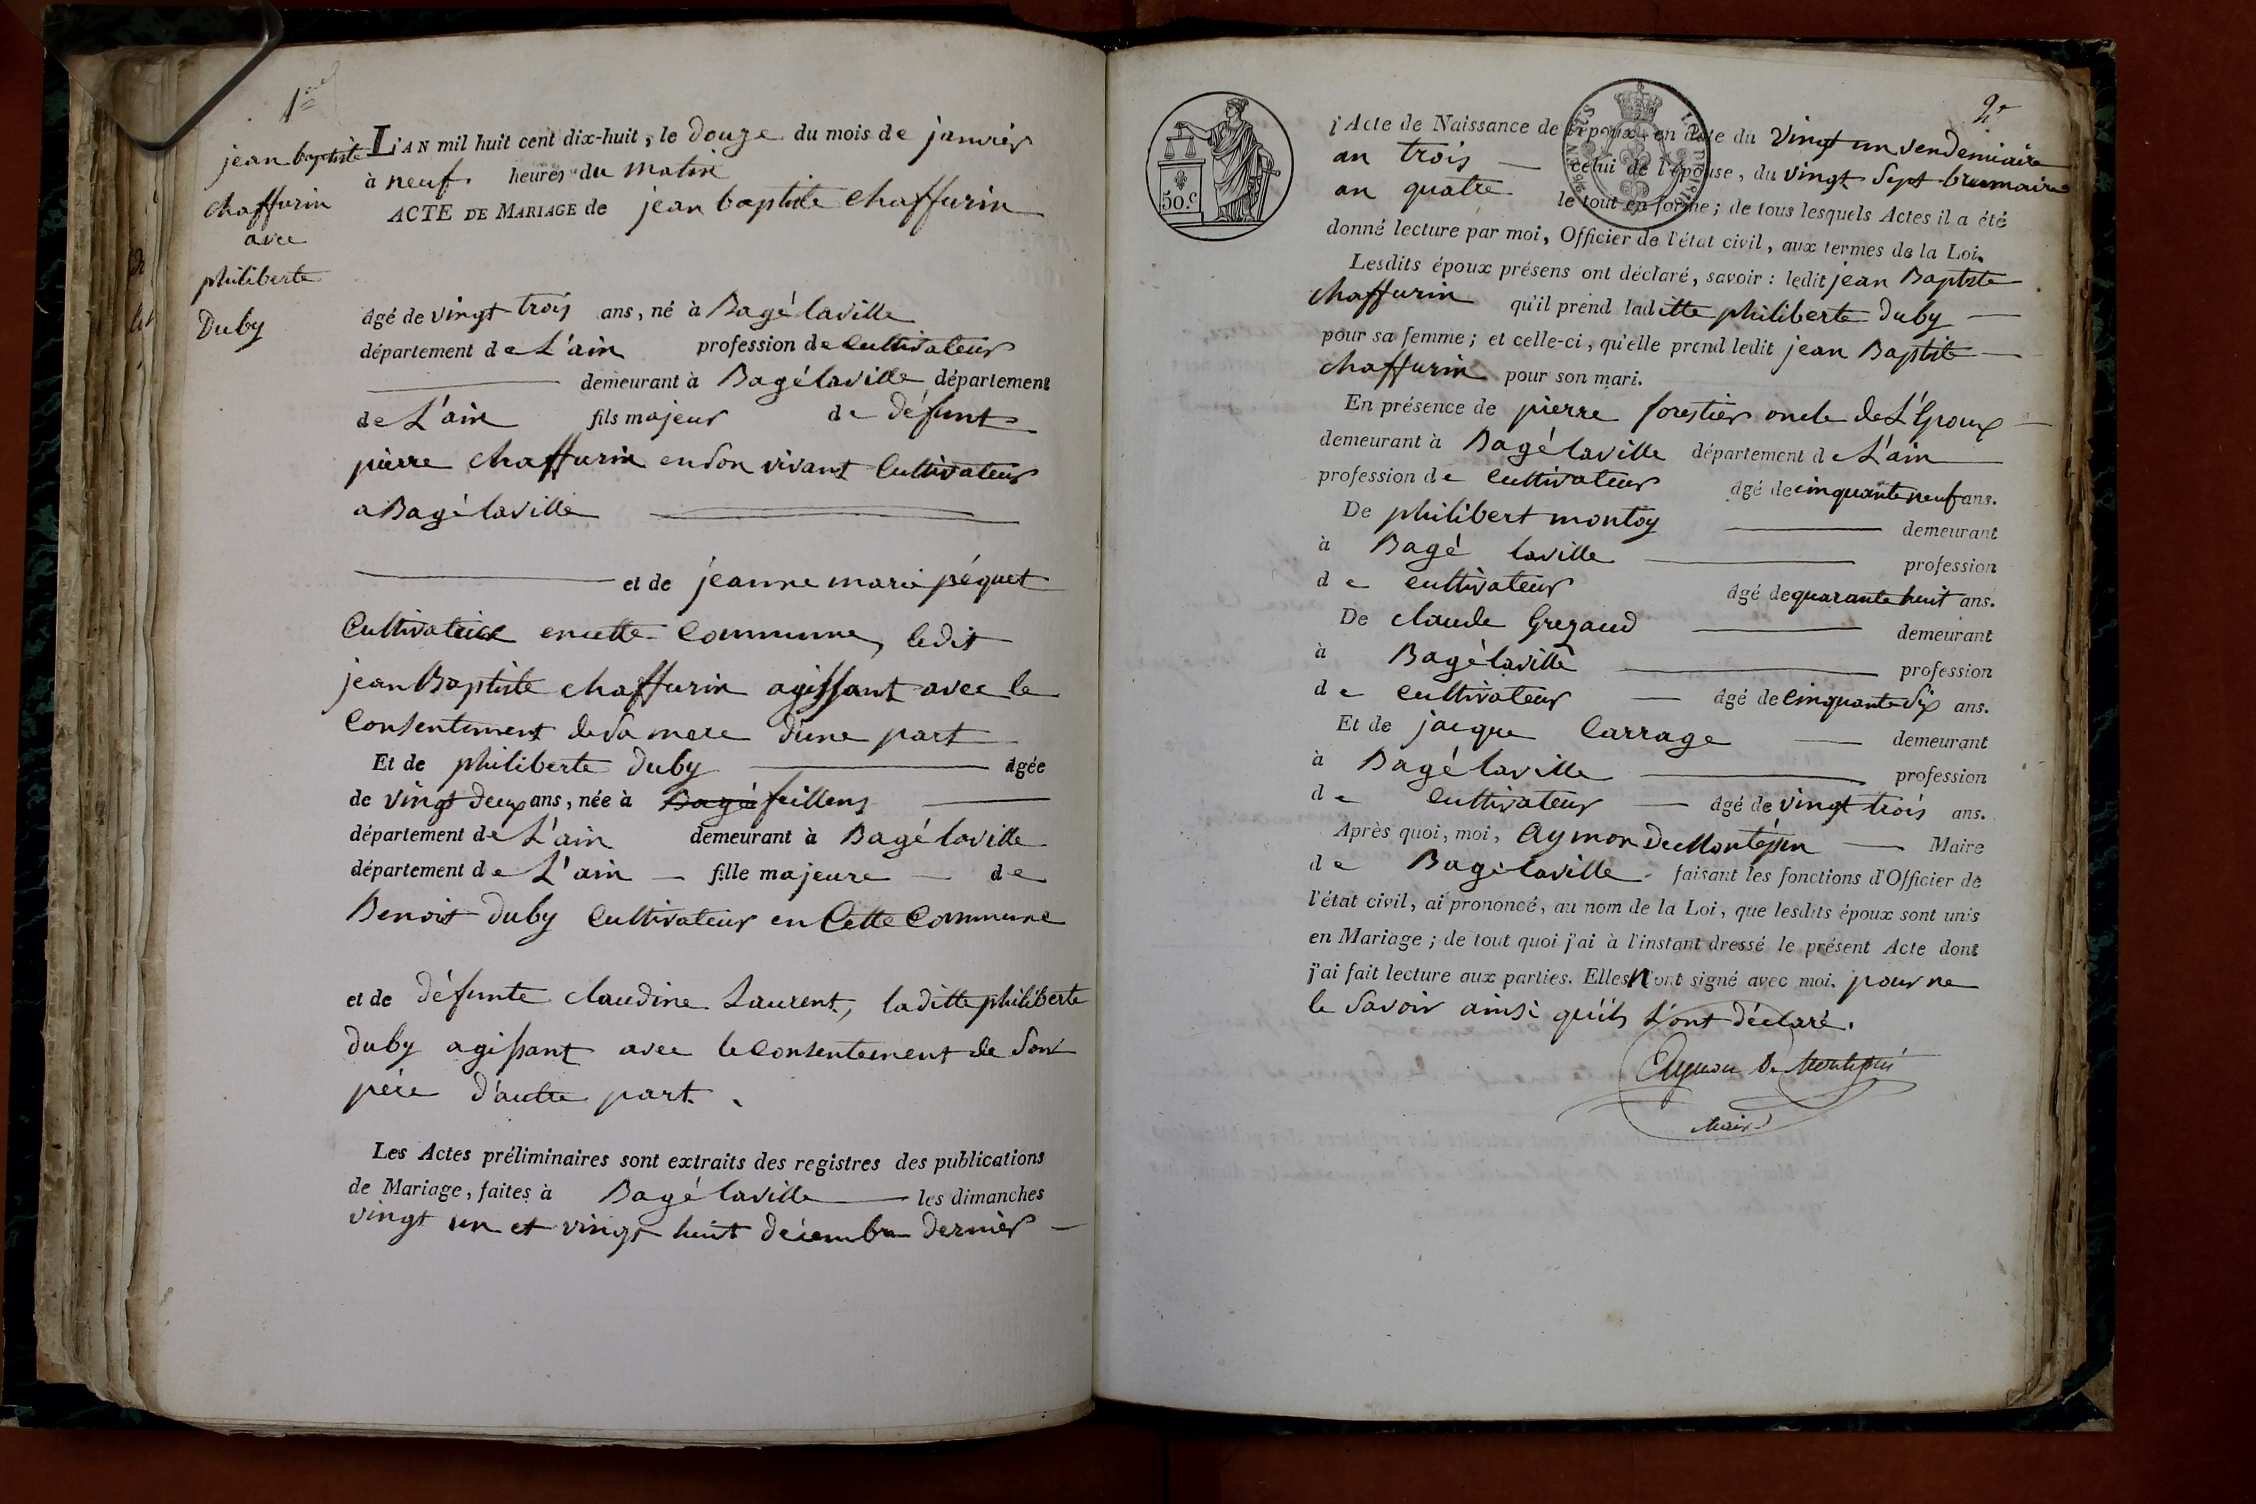 1er
jean baptiste
chaffurin
avec
philiberte
Duby
L'AN mil huit cent dix-huit, le douze du mois de janvier
à neuf heures du matin
ACTE DE MARIAGE de jean baptiste chaffurin
âgé de vingt trois ans, né à Bagé laville
département de L'ain profession de Cultivateur
demeurant à Bagé laville département
de L'ain fils majeur de défunt
pierre chaffurin en son vivant Cultivateur
a Bagé laville
et de jeanne marie péquet
Cultivatrice en cette Commune, ledit
jean Baptiste chaffurin agissant avec le
Consentement de Sa mere d'une part
Et de philiberte Duby âgée
de vingt deux ans, née à Bagé feillens
département de L'ain demeurant à Bagé laville
département de L'ain fille majeure de
Benoit Duby Cultivateur en Cette Commune
et de défunte claudine Laurent, laditte philiberte
duby agissant avec le Consentement de Son
père d'autre part.
Les Actes préliminaires sont extraits des registres des publications
de Mariage, faites à Bagé laville les dimanches
vingt un et vingt huit décembre dernier
2e
50.c
l'Acte de Naissance de l'époux en date du vingt un vendemiaire
an trois celui de l'épouse, du vingt Sept brumaire
an quatre le tout en forme; de tous lesquels Actes il a été
donné lecture par moi, Officier de l'état civil, aux termes de la Loi.
Lesdits époux présens ont déclaré, savoir: ledit jean Baptiste
chaffurin qu'il prend laditte philiberte duby
pour sa femme; et celle-ci, qu'elle prend ledit jean Baptiste
chaffurin pour son mari.
En présence de pierre forestier oncle de L'Epoux
demeurant à Bagé laville département de L'ain
profession de Cultivateur âgé de cinquante neuf ans.
De philibert montoy demeurant
à Bagé laville profession
de cultivateur âgé de quarante huit ans.
De claude Gregaud demeurant
à Bagé laville profession
de Cultivateur âgé de Cinquante Six ans.
Et de jacque Carrage demeurant
à Bagé laville profession
de Cultivateur âgé de vingt trois ans.
Après quoi, moi, Aymon De Montépin Maire
de Bagé laville faisant les fonctions d'Officier de
l'état civil, ai prononcé, au nom de la Loi, que lesdits époux sont unis
en Mariage; de tout quoi j'ai à l'instant dressé le présent Acte dont
j'ai fait lecture aux parties. Elles n'ont signé avec moi. pour ne
le Savoir ainsi qu'ils L'ont déclaré.
Aymon De Montépin
Maire